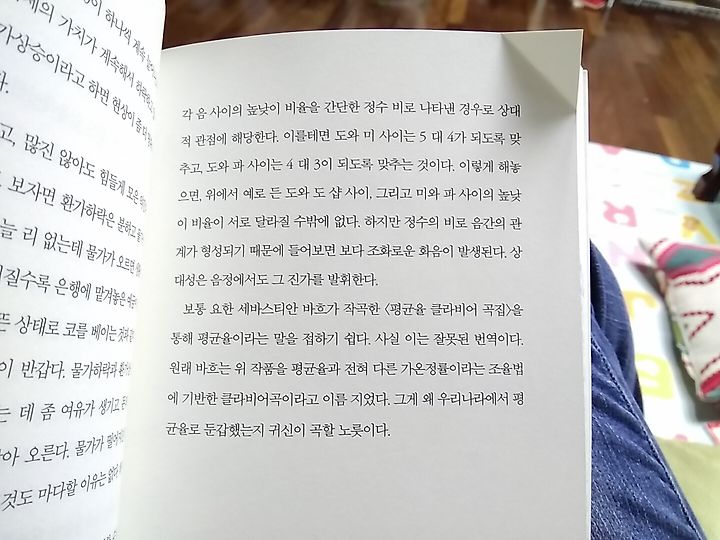 이 하나씩 계속
의 가치가 계속해서 하락
가상승이라고 하면 현상이 좀 더
다.
고, 많진 않아도 힘들게 모은
보자면 환가하락은 분하고
늘 리 없는데 물가가 오르면
질수록 은행에 맡겨놓은
뜬 상태로 코를 베이는 것과
이 반갑다. 물가하락과
는 데 좀 여유가 생기고
아 오른다. 물가가 떨어
것도 마다할 이유는 없
각 음 사이의 높낮이 비율을 간단한 정수 비로 나타낸 경우로 상대
적 관점에 해당한다. 이를테면 도와 미 사이는 5 대 4가 되도록 맞
추고, 도와 파 사이는 4 대 3이 되도록 맞추는 것이다. 이렇게 해놓
으면, 위에서 예로 든 도와 도 샵 사이, 그리고 미와 파 사이의 높낮
이 비율이 서로 달라질 수밖에 없다. 하지만 정수의 비로 음간의 관
계가 형성되기 때문에 들어보면 보다 조화로운 화음이 발생된다. 상
대성은 음정에서도 그 진가를 발휘한다.
보통 요한 세바스티안 바흐가 작곡한 〈평균율 클라비어 곡집〉을
통해 평균율이라는 말을 접하기 쉽다. 사실 이는 잘못된 번역이다.
원래 바흐는 위 작품을 평균율과 전혀 다른 가온정률이라는 조율법
에 기반한 클라비어곡이라고 이름 지었다. 그게 왜 우리나라에서 평
균율로 둔갑했는지 귀신이 곡할 노릇이다.